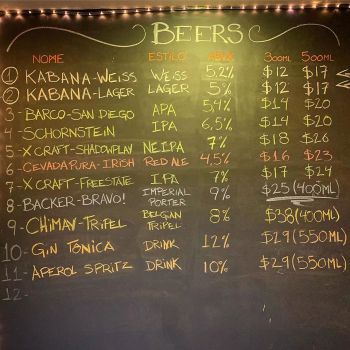 BEERS
NOME ESTILO ABV% 300ML 500ML
1 KABANA-WEISS WEISS 5,2% $12 $17
2 KABANA-LAGER LAGER 5% $12 $17
3- BARCO-SAN DIEGO APA 5,4% $14 $20
4- SCHORNSTEIN IPA 6,5% $14 $20
5- X CRAFT-SHADOWPLAY NEIPA 7% $18 $26
6- CEVADAPURA-IRISH RED ALE 4,5% $16 $23
7- X CRAFT-FREESTATE IPA 7% $17 $24
8- BACKER-BRAVO! IMPERIAL PORTER 9% $25(400ML)
9- CHIMAY-TRIPEL BELGIAN TRIPEL 8% $38(400ML)
10- GIN TÔNICA DRINK 12% $29(550ML)
11- APEROL SPRITZ DRINK 10% $29(550ML)
12-